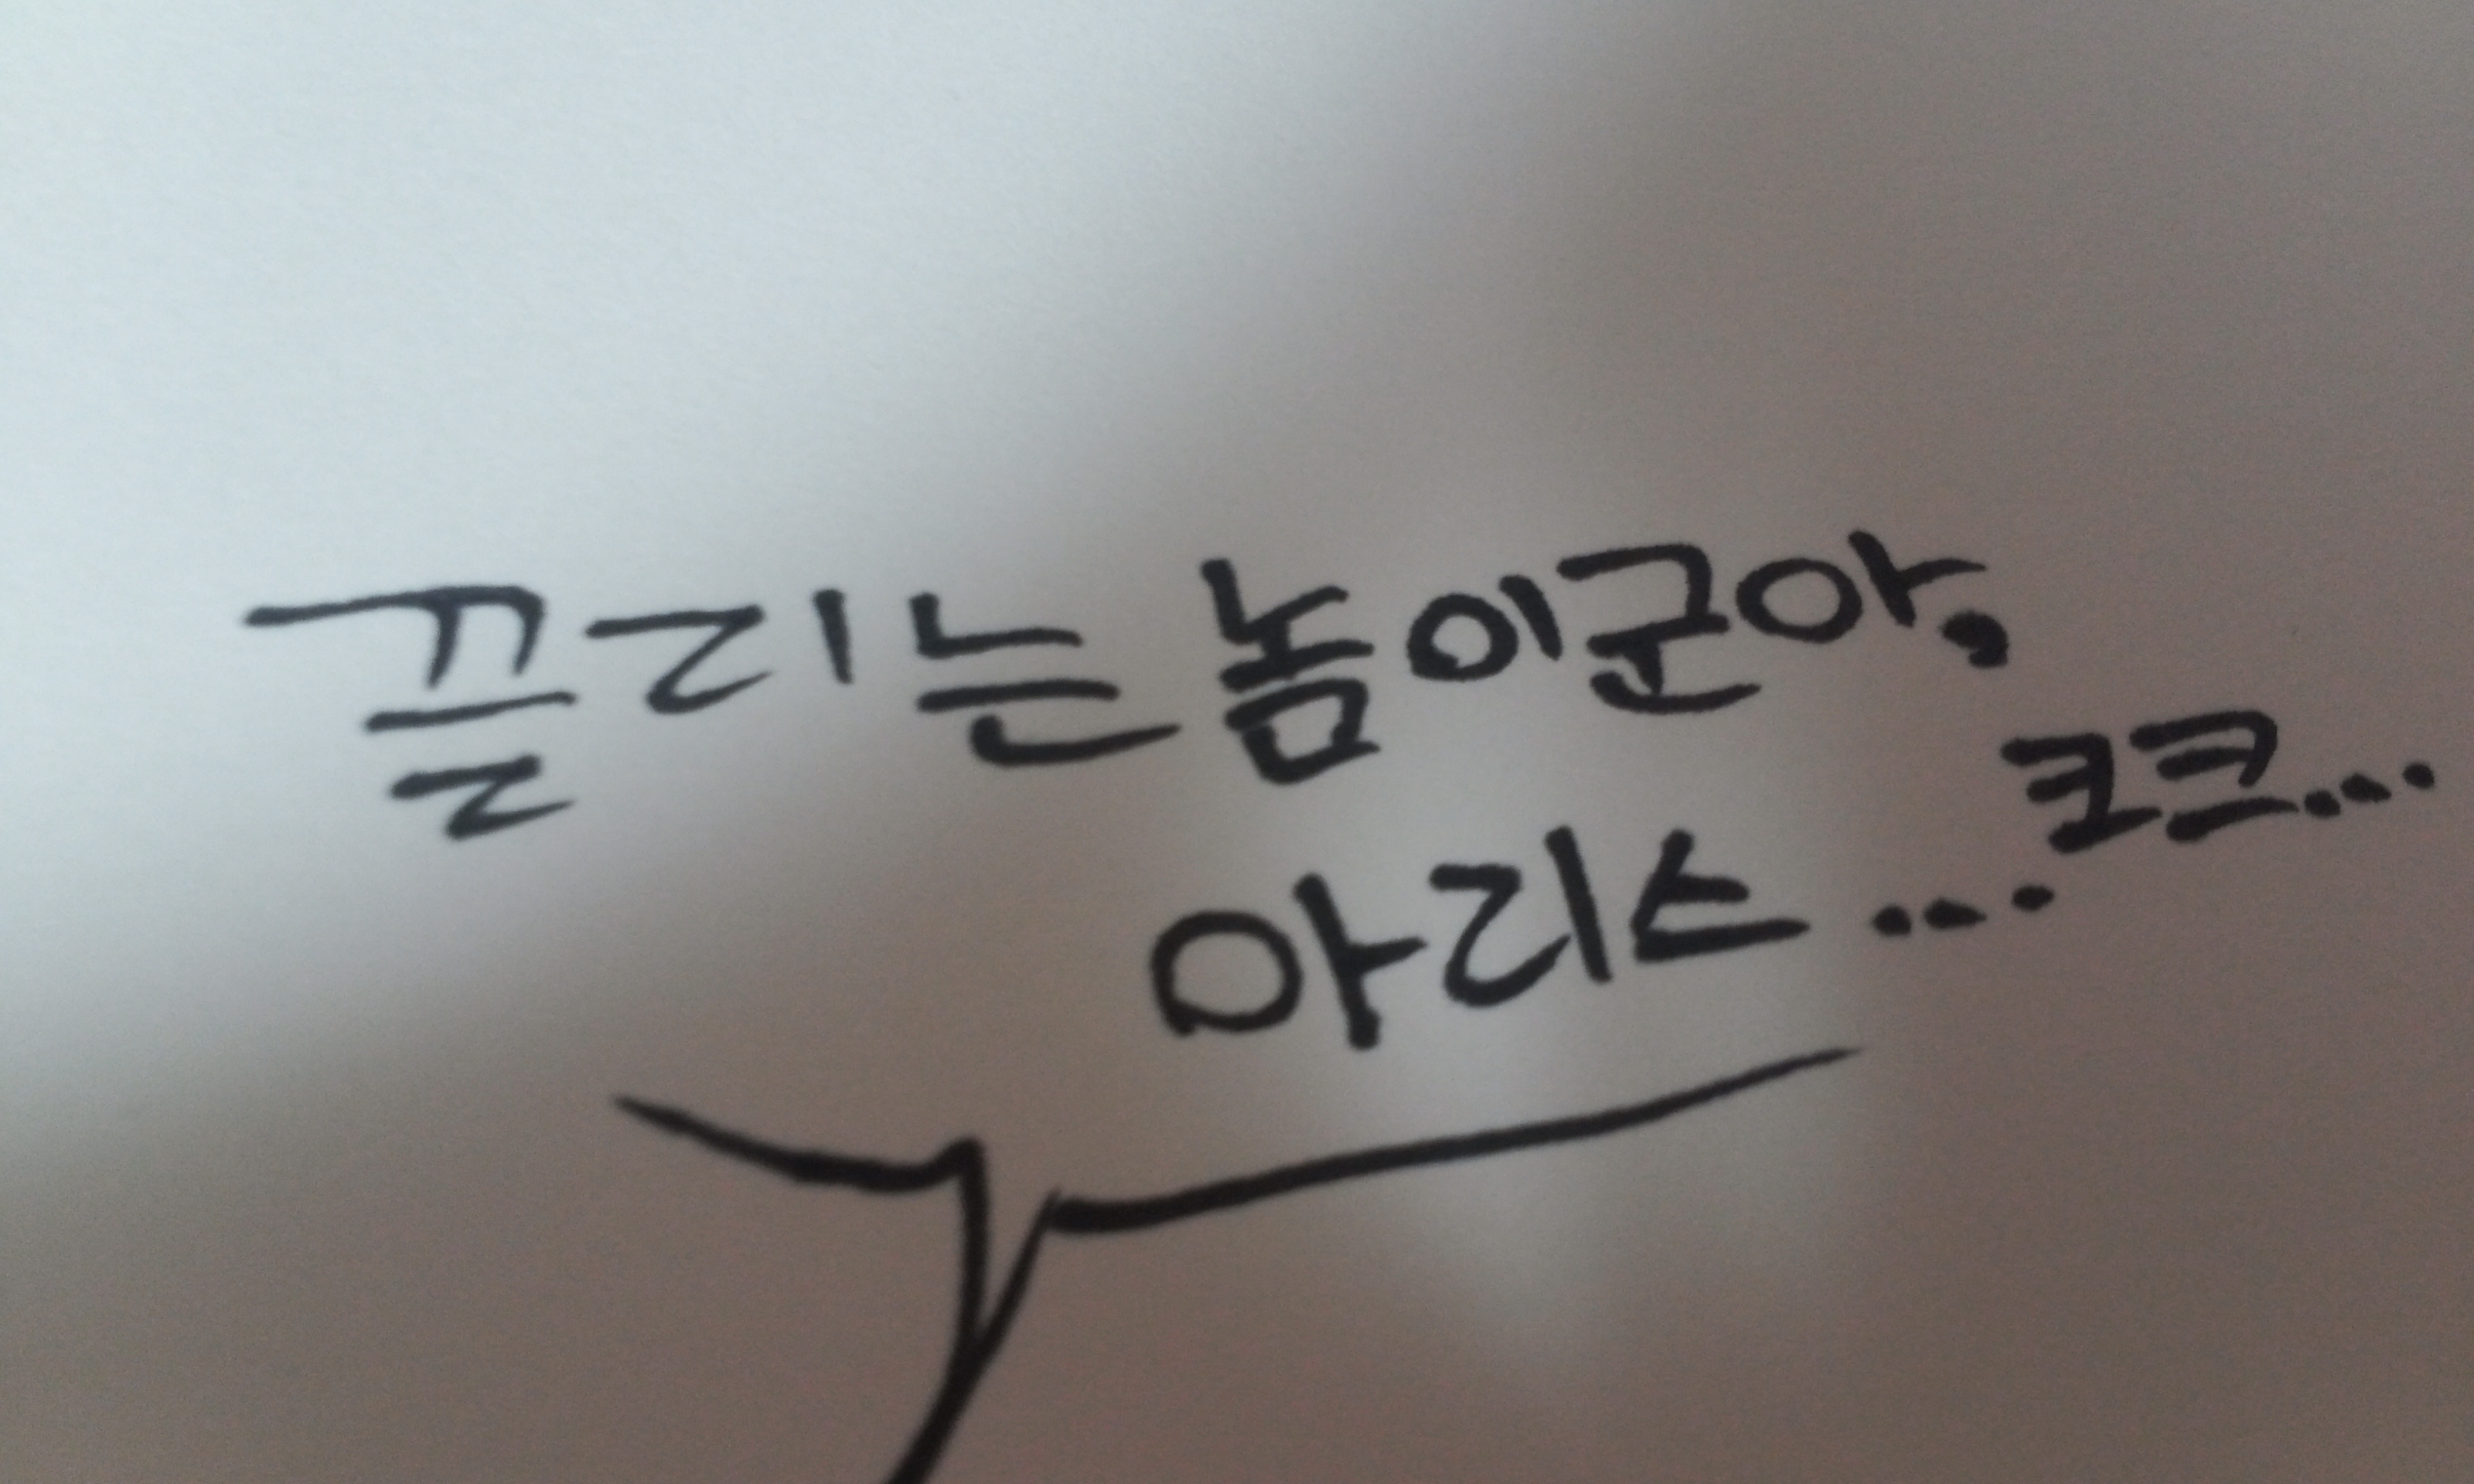 끌리는 놈이군아,
크크...
아리스....